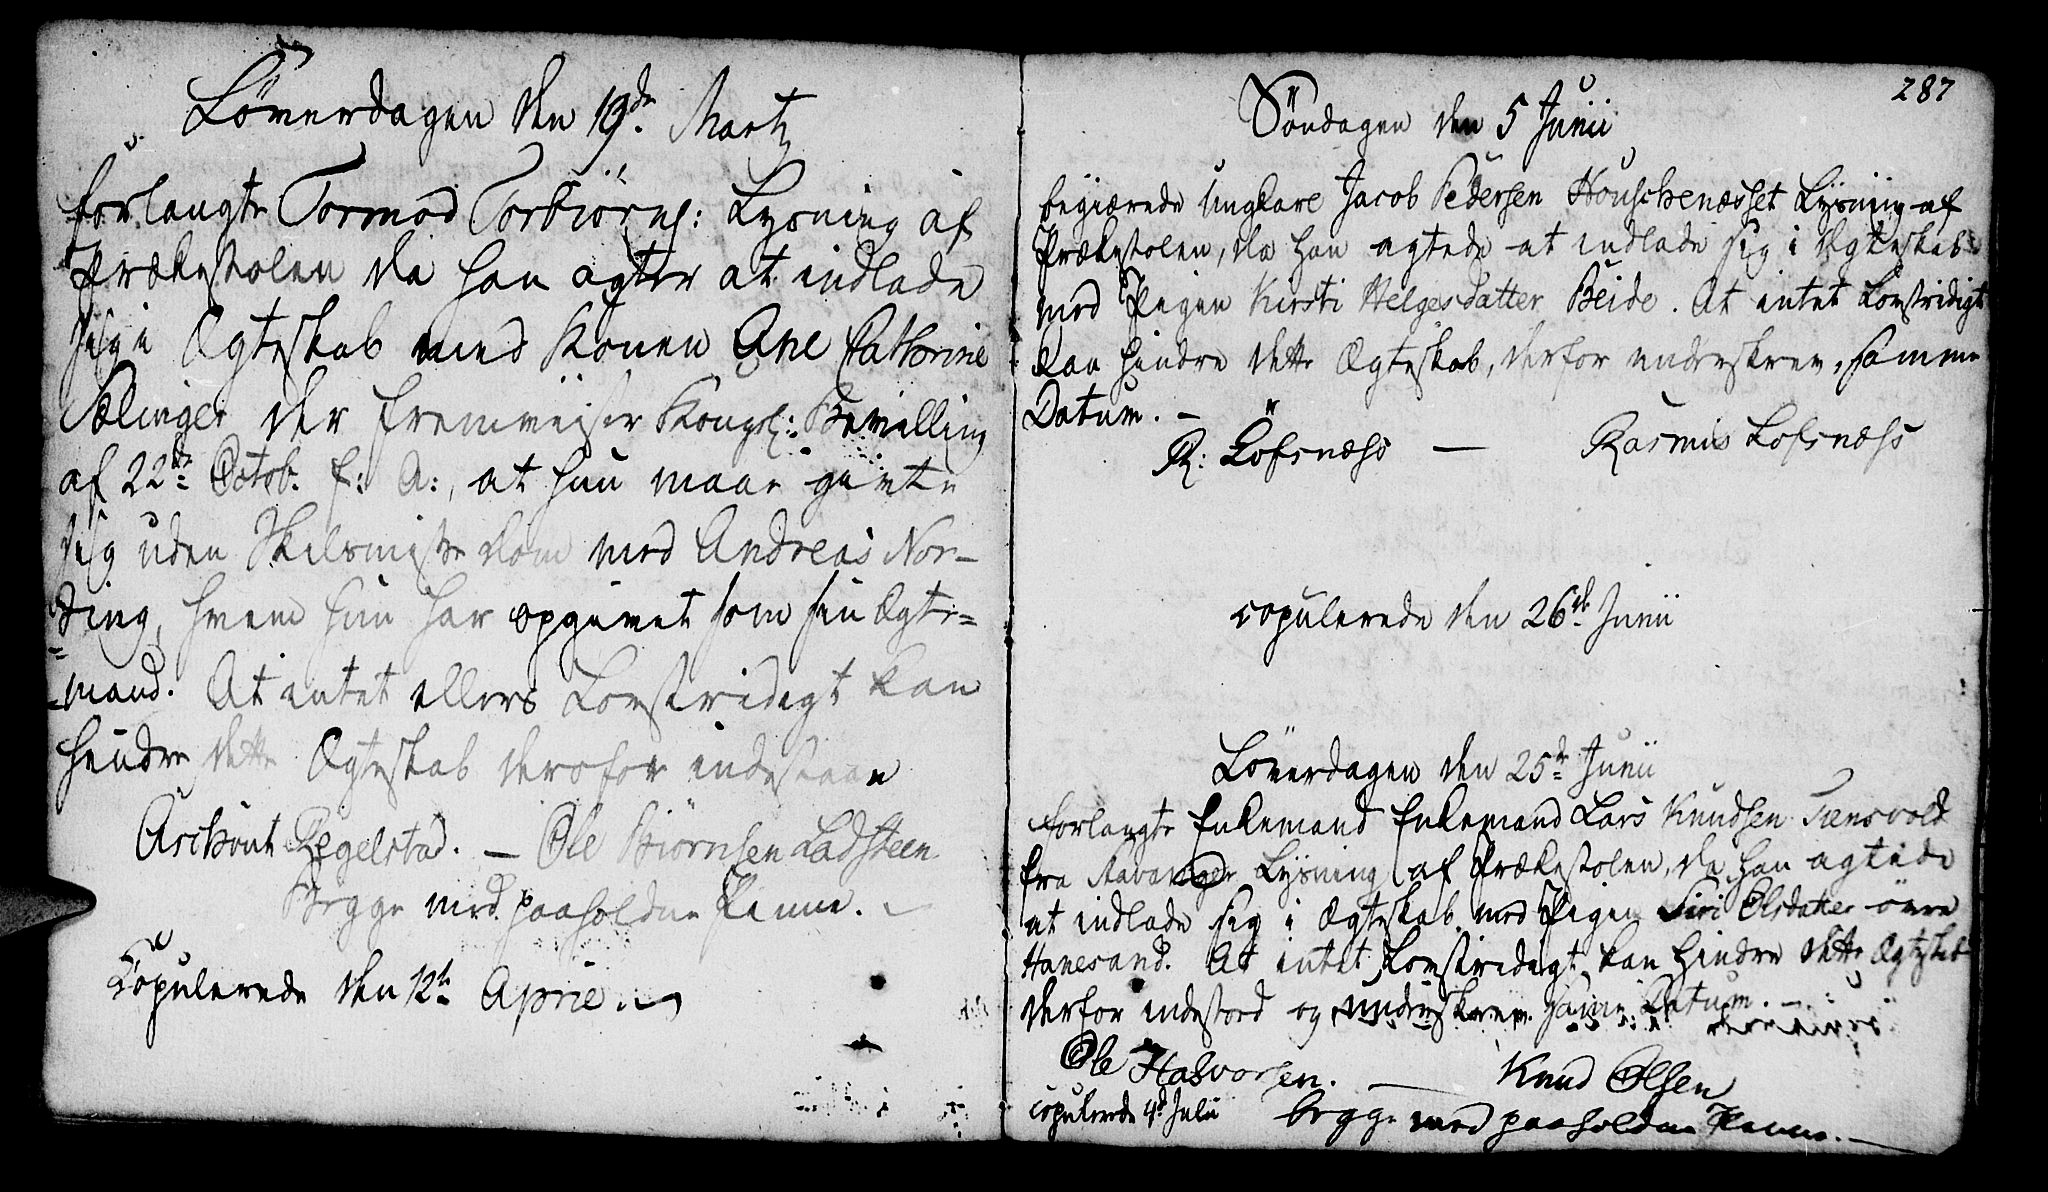 Löverdagen den 19de Martz
forlangte Tormod Torbiørns: Lysning af
Prækestolen da han agter at indlade
sig i Ægteskab med Konen Ane Cathrine
Selinger der fremviiser Kongel: Bevilling
af 22de Octob. f: A:, at hun maae givte
sig uden Skilsmisse dom med Andreas Nor-
ding, hvem hun har opgivet som sin Ægte=
=mand. At intet ellers Lovstridigt kan
hindre dette Ægteskab derfor indestaae
Aschout Egelstad. — Ole Biørnsen Ladsteen
Begge med paaholdne Penne. —
Copulerede den 12te April.
287
Söndagen den 5 Junii
begiærede Ungkare Jacob Pedersen Houschenæsset Lysning af
Prækestolen, da han agtede at indlade sig i Ægteskab
med Pigen Kirsti Helgesdatter Beide. At intet Lovstridigt
kan hindre dette Ægteskab, derfor underskrev, samme
Datum. —
R: Löfsnæss — Rasmus Lofsnæss
copulerede den 26de Junii
Löverdagen den 25de Junii
forlangte Enkemand Enkemand Lars Knudsen
fra Stavanger Lysning af Prækestolen, da han agtede
at indlade sig i Ægteskab med Pigen Siri Olsdatter övre
Hanesand. At intet Lovstridigt kan hindre dette Ægteskab
derfor indestod og underskrev samme Datum. —
Ole Halvorsen. — Knud Olsen
copulerede 4de Julii begge med paaholdne Penne. —